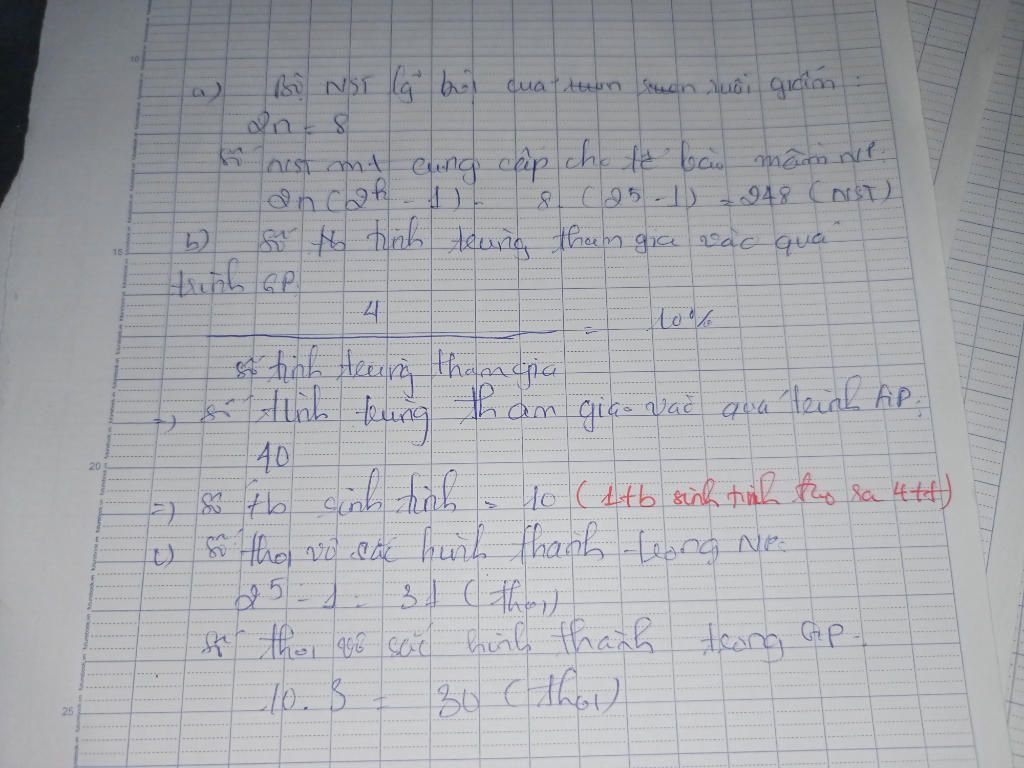 10
a) Bộ NST lưỡng bội của ruồi giấm:
2n = 8
Số NST mt cung cấp cho tế bào mầm NP:
2n (2^k - 1) = 8. (2^5 - 1) = 248 (NST)
15
b) Số tb tinh trùng tham gia vào quá
trình GP
4
= 10%
số tinh trùng tham gia
=) số tinh trùng tham gia vào quá trình GP:
40
20
=) số tb sinh tinh = 10 (1 tb sinh tinh tạo ra 4 tt)
c) Số thoi vô sắc hình thành trong NP:
2^5 - 1 = 31 (thoi)
Số thoi vô sắc hình thành trong GP:
10. 3 = 30 (thoi)
25